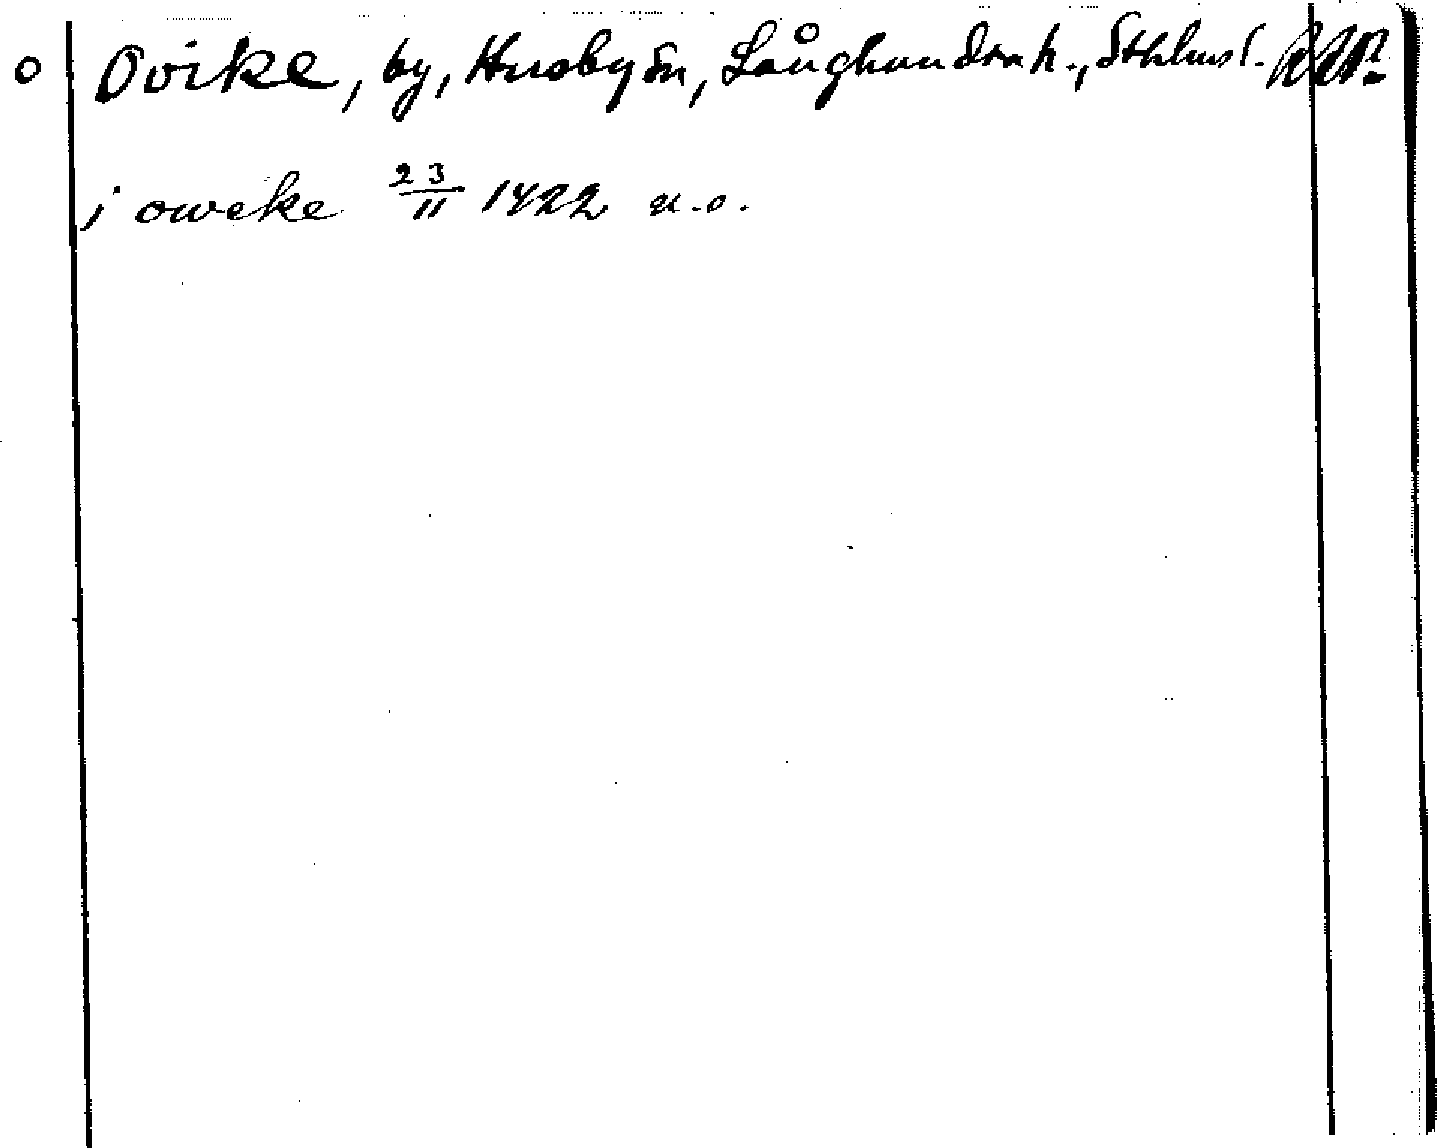 o Ovike, by, Husby sn, Långhundra h., Sthlms l.
j oweke 23/11 1422 u.o.